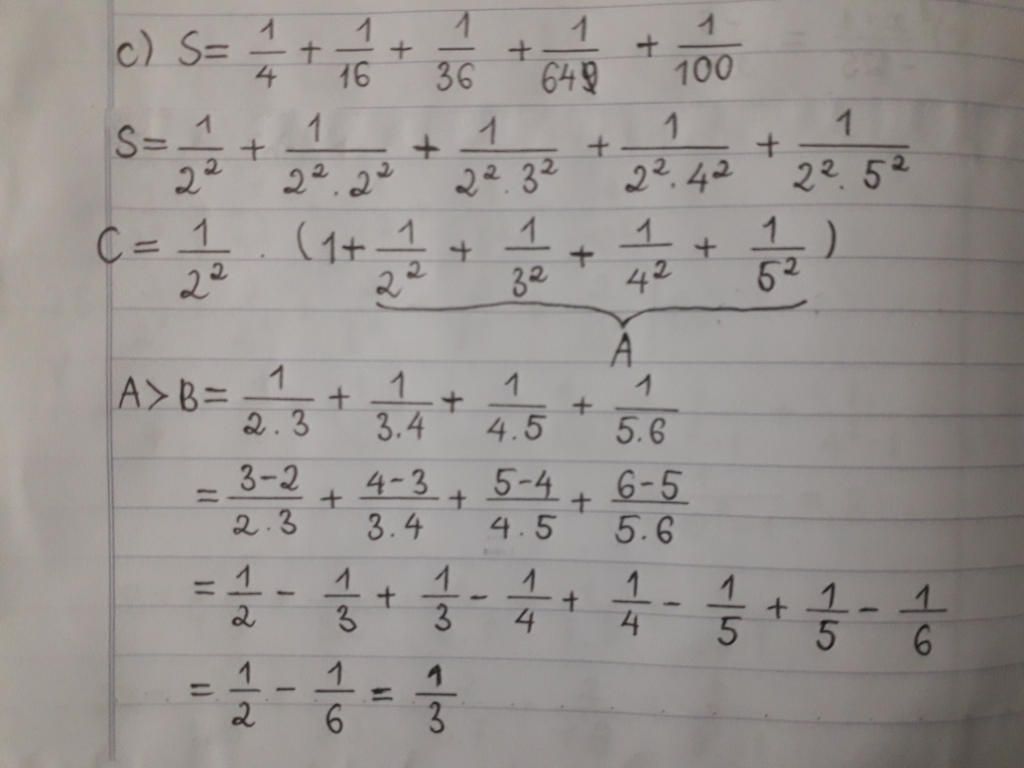 c) S = 1/4 + 1/16 + 1/36 + 1/64 + 1/100
S = 1/2² + 1/2².2² + 1/2².3² + 1/2².4² + 1/2².5²
C = 1/2² . (1 + 1/2² + 1/3² + 1/4² + 1/5²)
A
A > B = 1/2.3 + 1/3.4 + 1/4.5 + 1/5.6
= 3-2/2.3 + 4-3/3.4 + 5-4/4.5 + 6-5/5.6
= 1/2 - 1/3 + 1/3 - 1/4 + 1/4 - 1/5 + 1/5 - 1/6
= 1/2 - 1/6 = 1/3